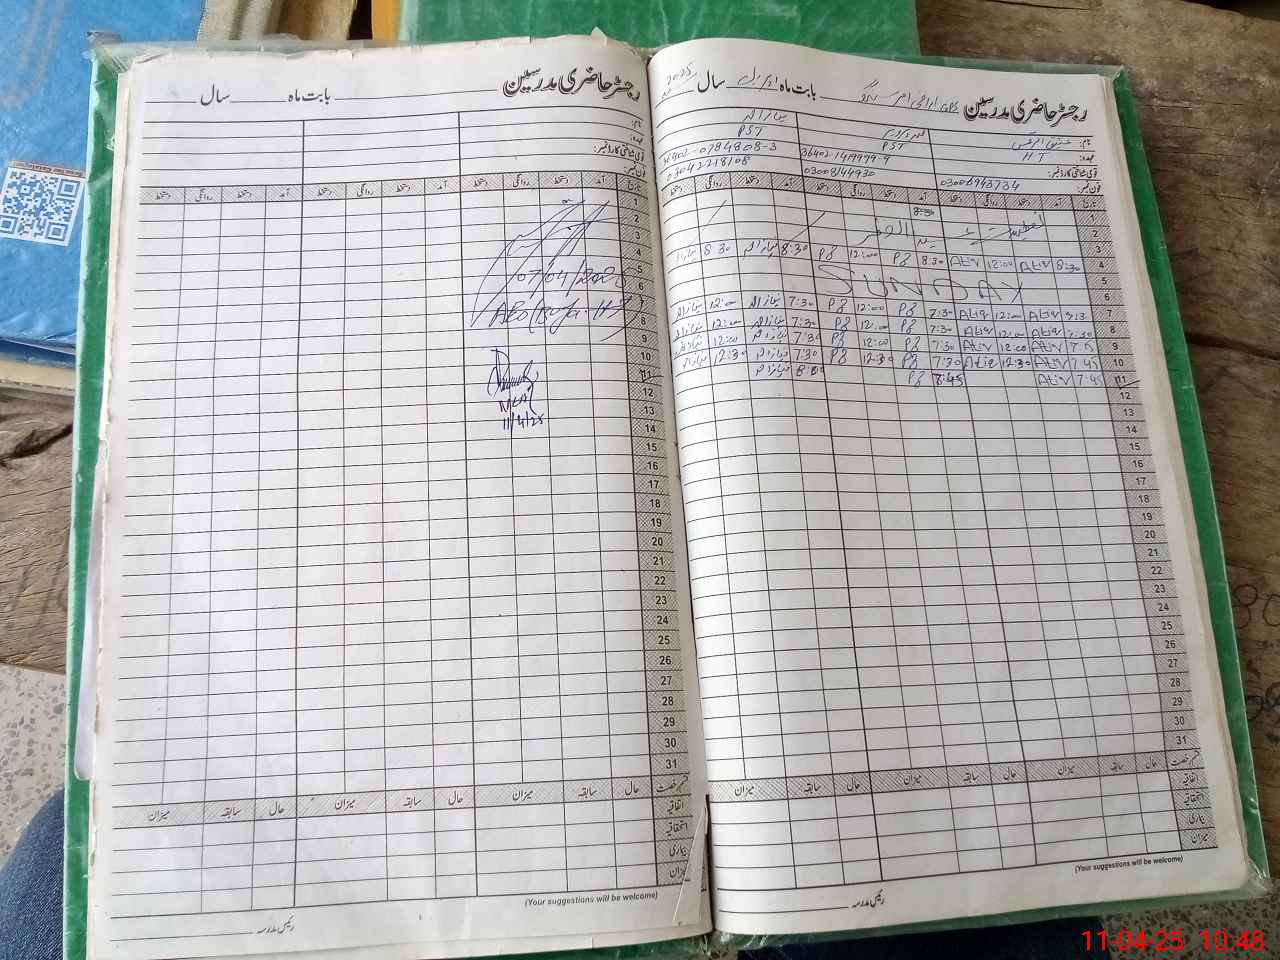 رجسٹر حاضری مدرسین ________ بابت ماہ ______ سال ______
نام:
عہدہ:
قومی شناختی کارڈ نمبر:
فون نمبر:
تاریخ آمد دستخط روانگی دستخط آمد دستخط روانگی دستخط آمد دستخط روانگی دستخط
1
2
3
4
5
6
7
8
9
10
11
12
13
14
15
16
17
18
19
20
21
22
23
24
25
26
27
28
29
30
31
07/04/2025
11/4/25
قسم رخصت حال سابقہ میزان حال سابقہ میزان حال سابقہ میزان
اتفاقیہ
استحقاقیہ
بیماری
میزان
(Your suggestions will be welcome)
رئیس مدرسہ
رجسٹر حاضری مدرسین GPS بابت ماہ اپریل سال 2025
نام:
عہدہ: HT PST PST
قومی شناختی کارڈ نمبر: 36402-1419979-9 36402-0784808-3
فون نمبر: 03006943734 03008144930 03042218108
تاریخ آمد دستخط روانگی دستخط آمد دستخط روانگی دستخط آمد دستخط روانگی دستخط
1
2 تعطیلات عید الفطر
3
4 8:30 Atiq 12:00 Atiq 8:30 12:00 8:30 8:30
5
6 SUNDAY
7 Atiq 12:00 Atiq 7:30 12:00 7:30 12:00
8 7:30 Atiq 12:00 Atiq 7:30 12:00 7:30 12:00
9 Atiq 12:00 Atiq 7:30 12:00 7:30 12:00
10 7:45 Atiq 12:30 Atiq 7:30 12:30 7:30 12:30
11 7:45 Atiq 8:45
12
13
14
15
16
17
18
19
20
21
22
23
24
25
26
27
28
29
30
31
حال سابقہ میزان حال سابقہ میزان حال سابقہ میزان
اتفاقیہ
استحقاقیہ
بیماری
میزان
(Your suggestions will be welcome)
رئیس مدرسہ
11-04-25 10:48